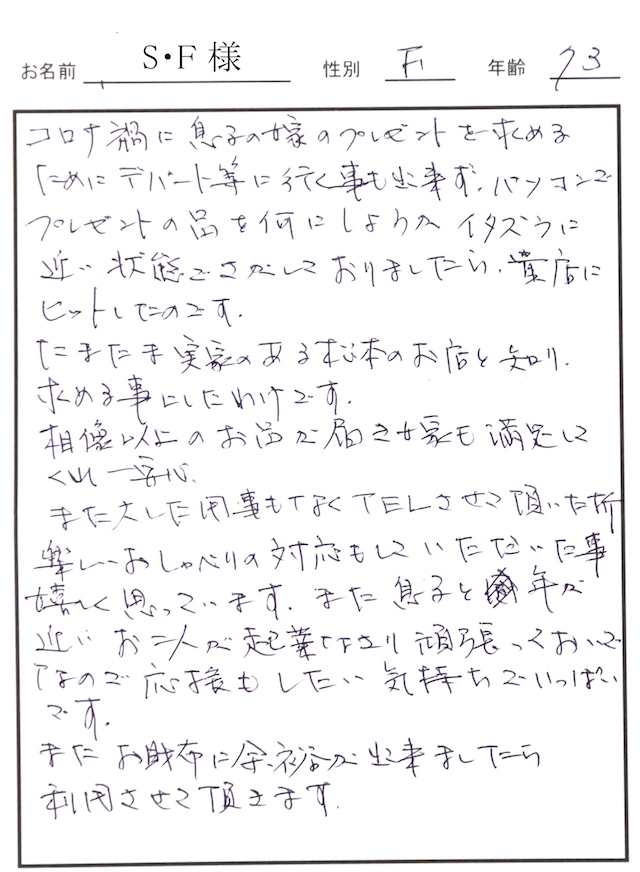 お名前 S・F 様 性別 F 年齢 73
コロナ禍に息子の嫁のプレゼントを求める
ためにデパート等に行く事も出来ず、パソコンで
プレゼントの品を何にしようか イタズラに
近い状態でさがしておりましたら、貴店に
ヒットしたのです。
たまたま実家のある松本のお店と知り、
求める事にしたわけです。
相像以上のお品が届き嫁も満足して
くれ一安心、
また大した用事もなくTELさせて頂いた所
楽しいおしゃべりの対応もしていただいた事
嬉しく思っています。また息子と年が
近いお二人が起業なさり頑張っておいで
なので応援もしたい気持ちでいっぱい
です。
またお財布に余裕が出来ましたら
利用させて頂きます。